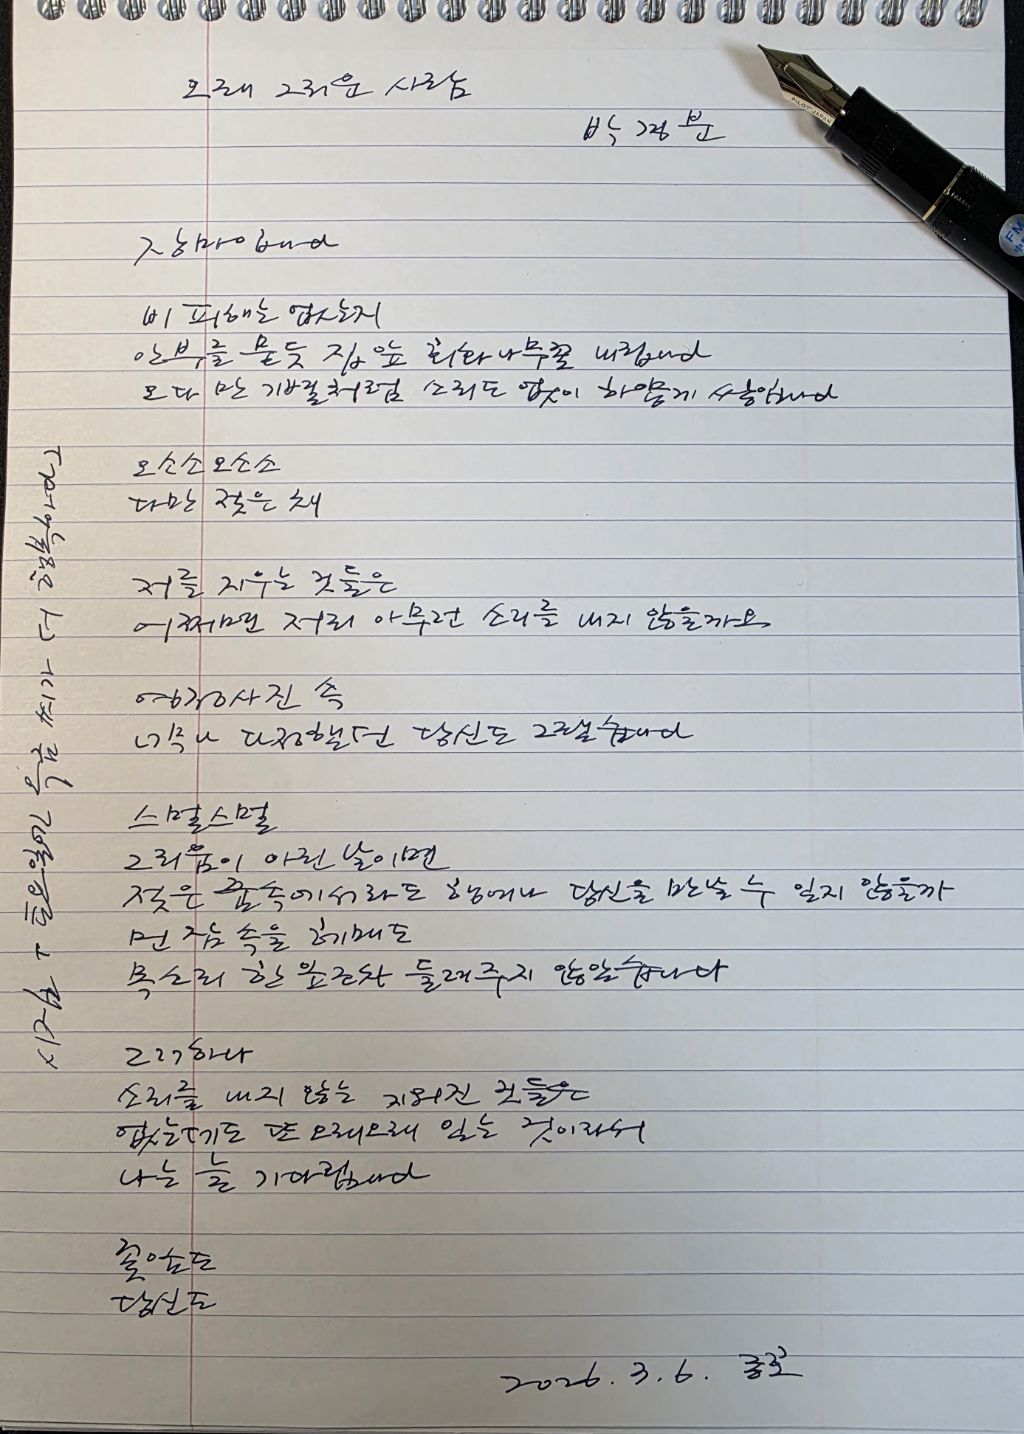 오래 그리운 사람
박경분
장마입니다
비 피해는 없는지
안부를 묻듯 집 앞 회화나무꽃 내립니다
오다 만 기별처럼 소리도 없이 하얗게 쌓입니다
오소소 오소소
다만 젖은 채
저를 지우는 것들은
어쩌면 저리 아무런 소리를 내지 않을까요
영정사진 속
너무나 다정했던 당신도 그랬습니다
스멀스멀
그리움이 아린 날이면
젖은 꿈속에서라도 행여나 당신을 만날 수 있지 않을까
먼 잠 속을 헤매도
목소리 한 뼘조차 들려주지 않았습니다
그러하나
소리를 내지 않는 지워진 것들은
없는데도 또 오래오래 있는 것이라서
나는 늘 기다립니다
꽃잎도
당신도
2026. 3. 6.
PILOT JAPAN
FM